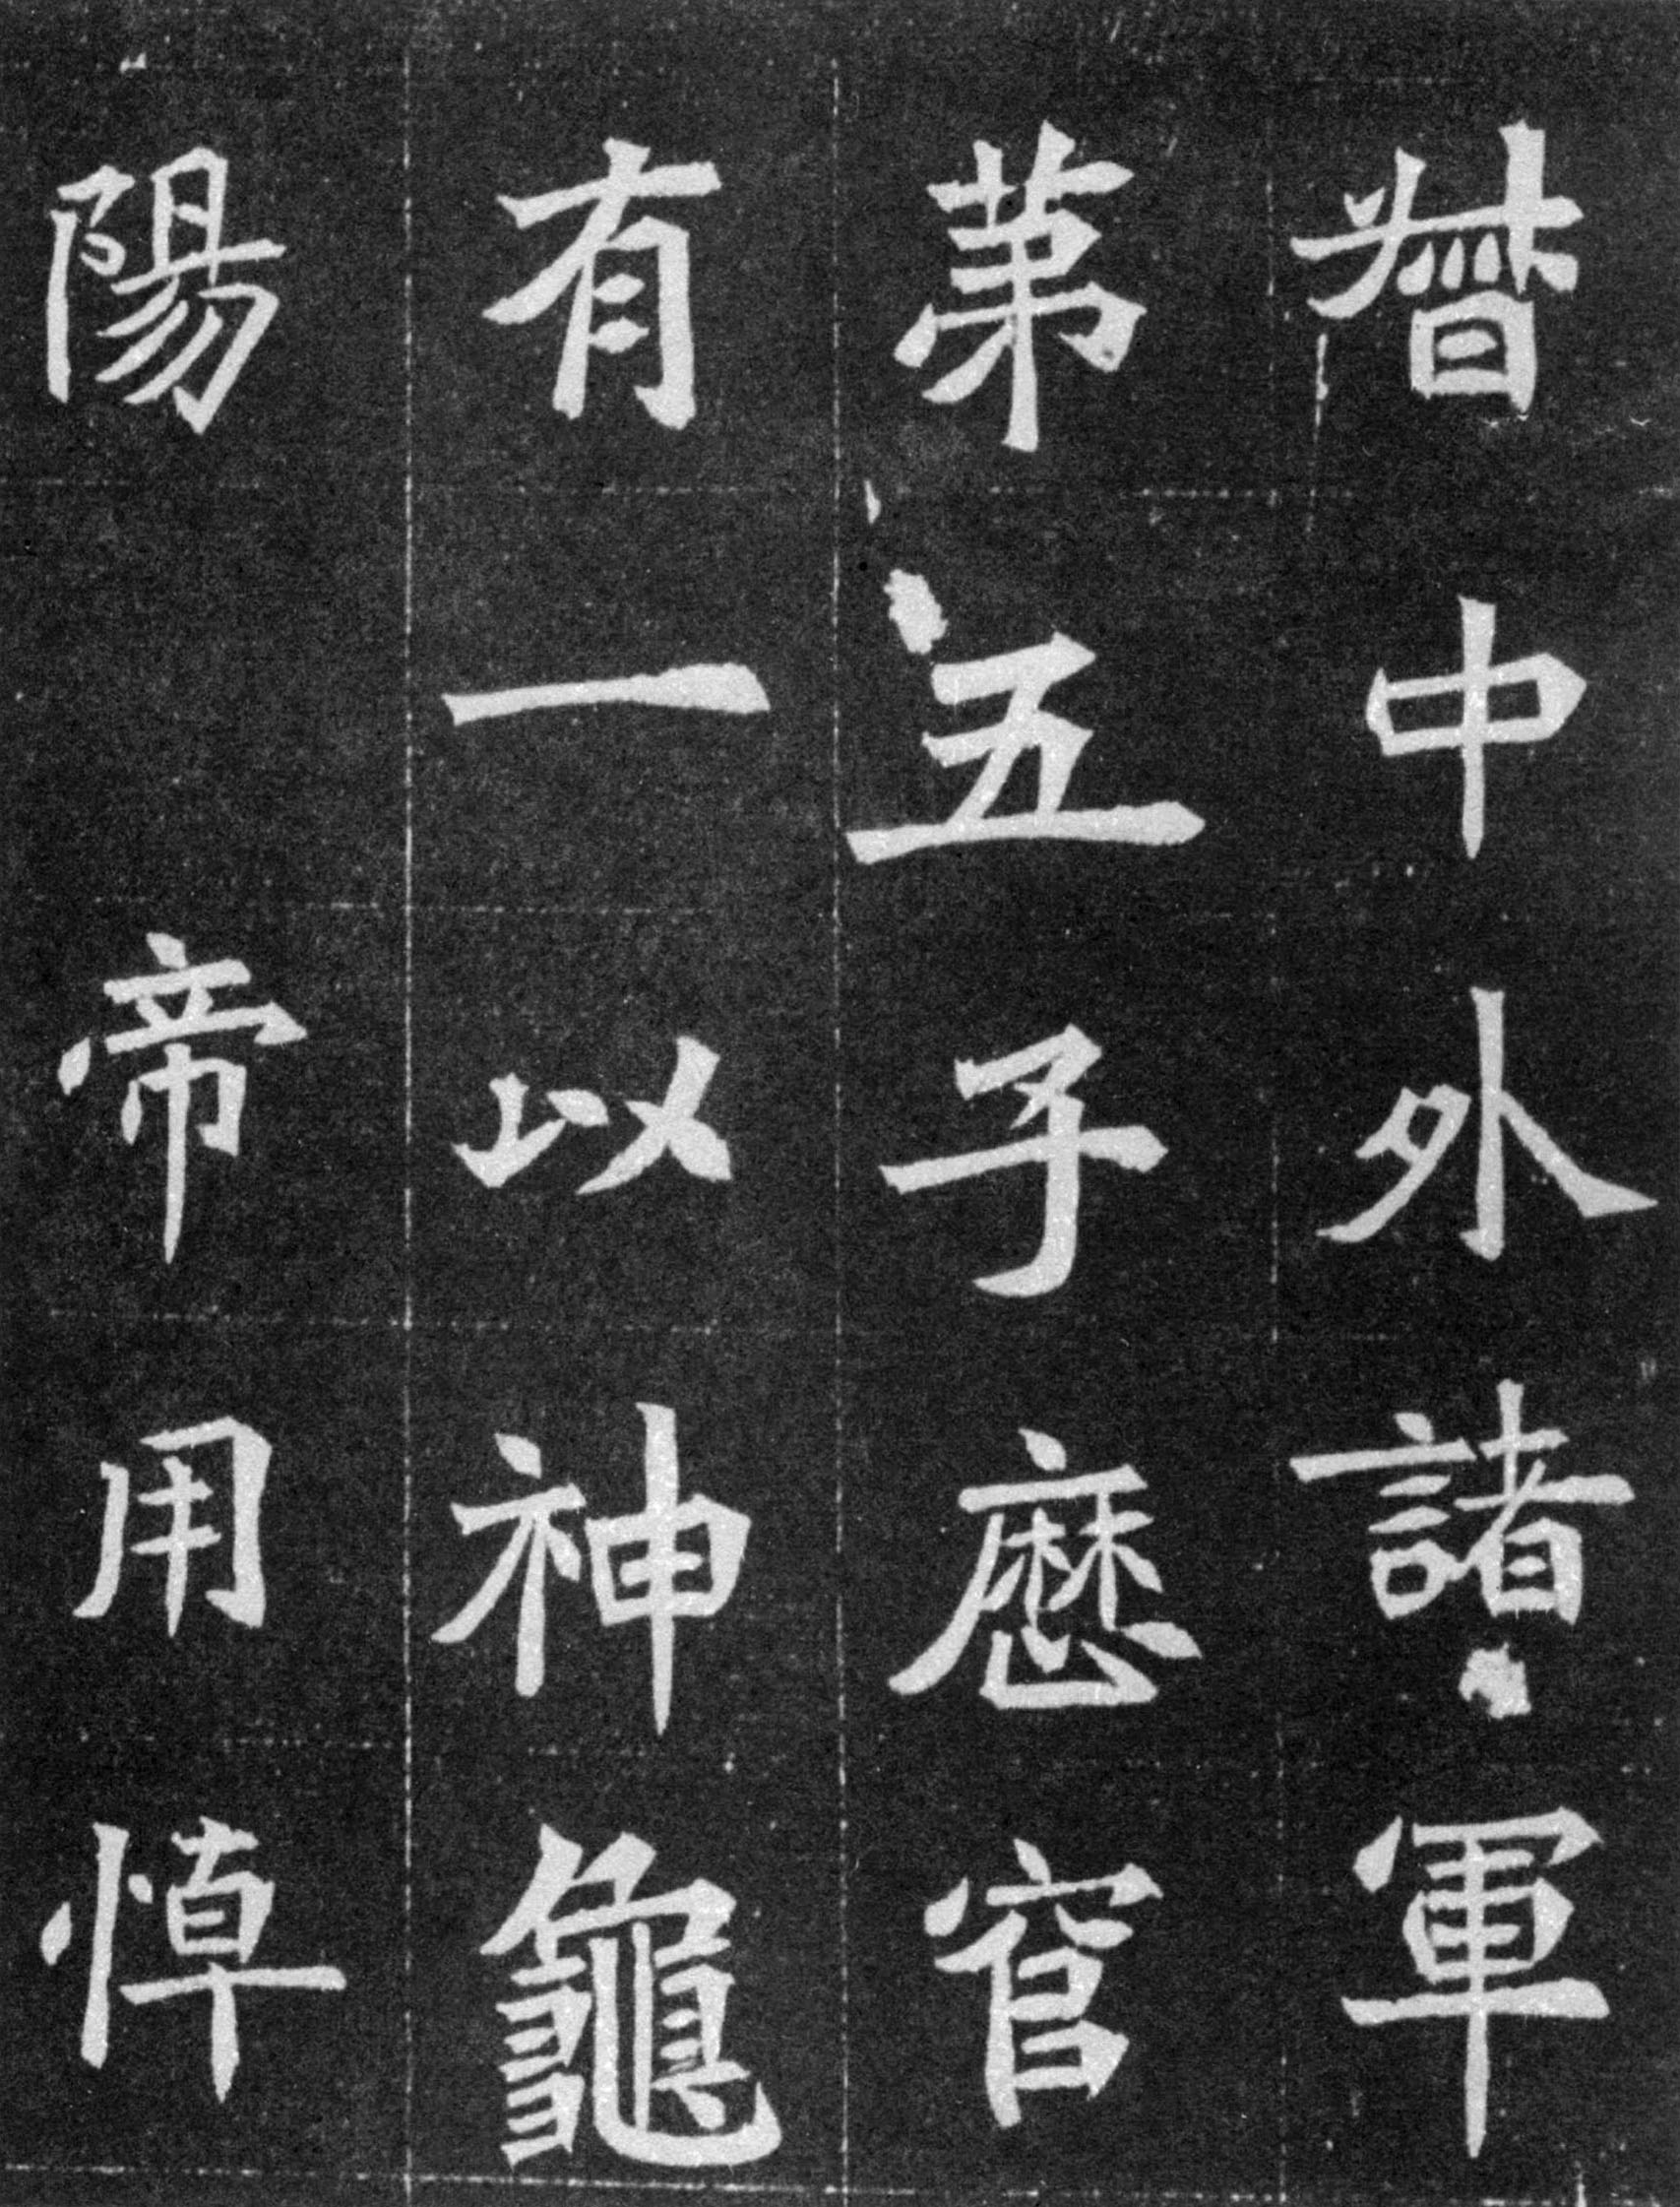 督中外諸軍
苐五子歷官
有一以神龜
陽帝用悼